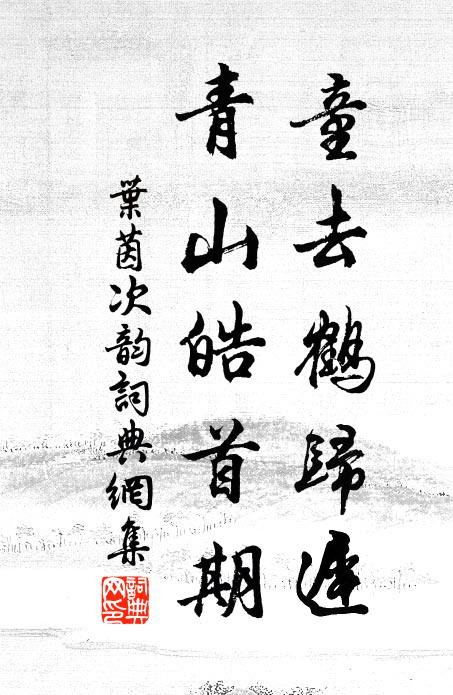 童去鶴歸遲
青山皓首期
葉茵次韵詞典網集
詞典网印